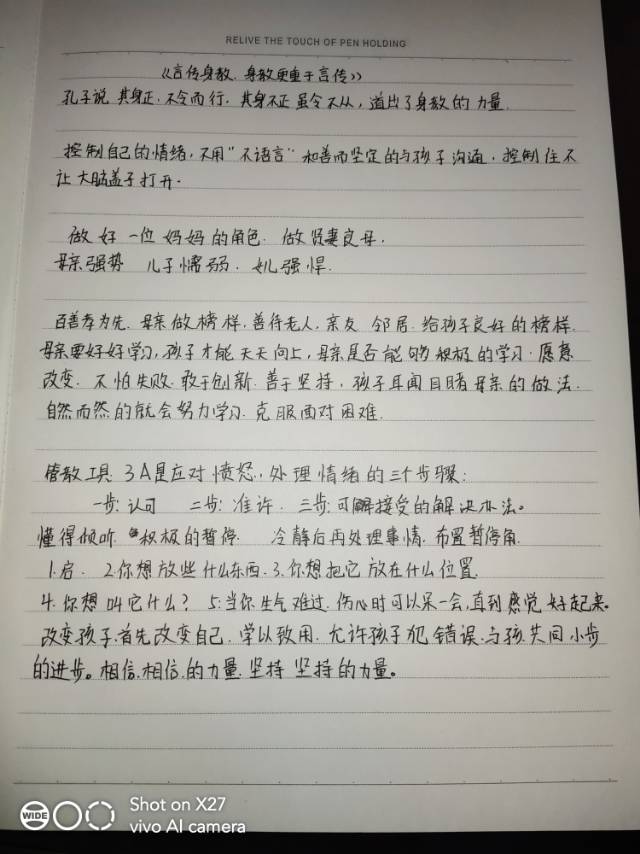 RELIVE THE TOUCH OF PEN HOLDING
《言传身教.身教更重于言传》
孔子说 其身正.不令而行.其身不正 虽令不从,道出了身教的力量.
控制自己的情绪,不用"不语言"和善而坚定的与孩子沟通.控制住不
让大脑盖子打开.
做好一位妈妈的角色.做贤妻良母.
母亲强势 儿子懦弱.女儿强悍.
百善孝为先.母亲做榜样,善待老人.亲友 邻居.给孩子良好的榜样.
母亲要好好学习,孩子才能天天向上,母亲是否能够积极的学习.愿意
改变.不怕失败.敢于创新.善于坚持,孩子耳闻目睹母亲的做法.
自然而然的就会努力学习.克服面对困难.
管教工具 3A是应对愤怒.处理情绪的三个步骤:
一步:认可 二步:准许.三步:可接受的解决办法。
懂得倾听.积极的暂停. 冷静后再处理事情.布置暂停角.
1.启. 2.你想放些什么东西.3.你想把它放在什么位置.
4.你想叫它什么? 5.当你生气难过.伤心时可以呆一会,直到感觉好起来.
改变孩子.首先改变自己.学以致用.允许孩子犯错误.与孩共同小步
的进步。相信.相信.的力量.坚持 坚持的力量。
WIDE
Shot on X27
vivo AI camera